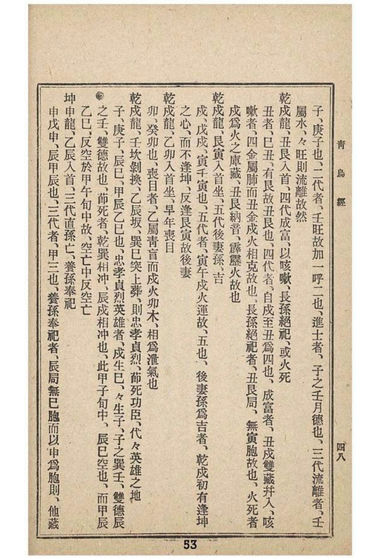 靑烏經
四八
子、庚子也、二代者、壬旺故加一呼二也、進士者、子之壬月德也、三代流離者、壬
屬水、々旺則流離故然
乾戌龍、丑艮入首、四代成富、以咳嗽、長孫絕祀、或火死
丑者、巳丑、有艮故丑艮也、四代者、自戌至丑爲四也、成富者、丑戌雙藏幷入、咳
嗽者、四金屬肺而丑金戌火相克故也、長孫絕祀者、丑艮局、無寅胞故也、火死者
戌爲火之庫藏、丑艮納音、霹靂火故也
乾戌龍、艮寅入首坐、五代後妻孫、吉
戌、戊戌、寅壬寅也、五代者、寅午戌火運故、五也、後妻孫爲吉者、乾戌初有逢坤
之心、而不逢坤、反逢艮寅故後妻
乾戌龍、乙卯入首坐、早年喪目
卯、癸卯也、喪目者、乙屬靑盲而戌火卯木、相爲洩氣也
乾戌龍、壬坎剝換、乙辰坂、巽巳突上葬、則忠孝貞烈、節死功臣、代々英雄之地
子、庚子、辰巳、甲辰乙巳也、忠孝貞烈英雄者、戌生巳、々生子、子之巽壬、雙德辰
之壬、雙德故也、節死者、乾巽相冲、辰戌相冲也、此甲子旬中、辰巳空也、而甲辰
乙巳、反空於甲午旬中故、空亡中反空亡
坤申龍、乙辰入首、三代直孫亡、養孫奉祀
申戊申、辰甲辰也、三代者、甲三也、養孫奉祀者、辰局無巳胞而以申爲胞則、他藏
53